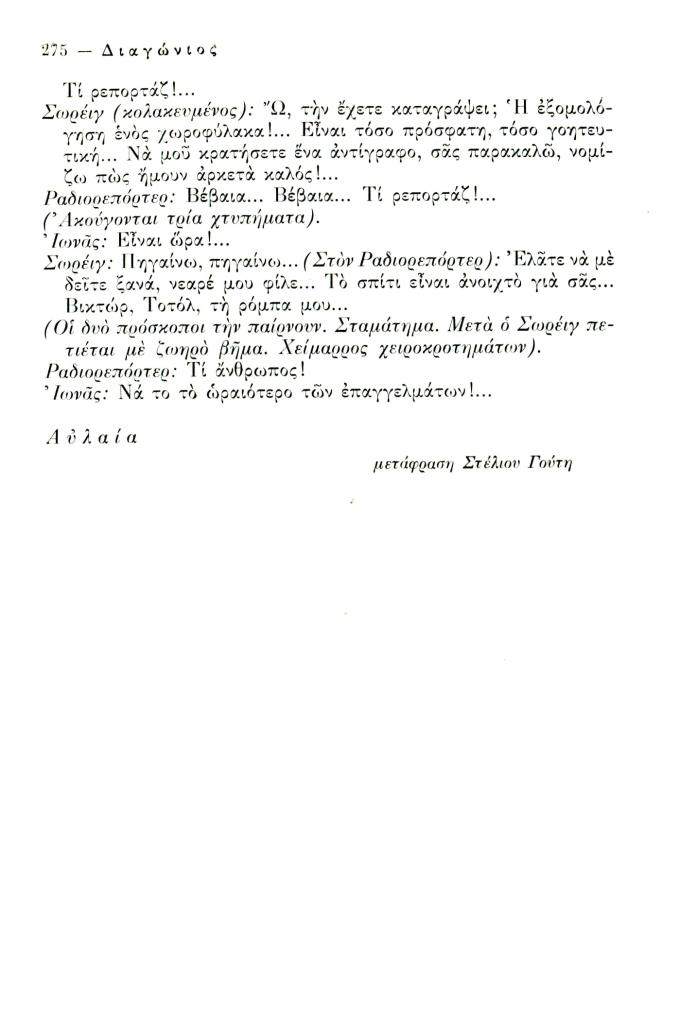 275 — Διαγώνιος
Τί ρεπορτάζ!...
Σωρέιγ (κολακευμένος): Ὢ, τὴν ἔχετε καταγράψει; Ἡ ἐξομολό-
γηση ἑνὸς χωροφύλακα!... Εἶναι τόσο πρόσφατη, τόσο γοητευ-
τική... Νὰ μοῦ κρατήσετε ἕνα ἀντίγραφο, σᾶς παρακαλῶ, νομί-
ζω πὼς ἤμουν ἀρκετὰ καλός!...
Ραδιορεπόρτερ: Βέβαια... Βέβαια... Τί ρεπορτάζ!...
(Ἀκούγονται τρία χτυπήματα).
Ἰωνᾶς: Εἶναι ὥρα!...
Σωρέιγ: Πηγαίνω, πηγαίνω... (Στὸν Ραδιορεπόρτερ): Ἐλᾶτε νὰ μὲ
δεῖτε ξανά, νεαρέ μου φίλε... Τὸ σπίτι εἶναι ἀνοιχτὸ γιὰ σᾶς...
Βικτώρ, Τοτόλ, τὴ ρόμπα μου...
(Οἱ δυὸ πρόσκοποι τὴν παίρνουν. Σταμάτημα. Μετὰ ὁ Σωρέιγ πε-
τιέται μὲ ζωηρὸ βῆμα. Χείμαρρος χειροκροτημάτων).
Ραδιορεπόρτερ: Τί ἄνθρωπος!
Ἰωνᾶς: Νά το τὸ ὡραιότερο τῶν ἐπαγγελμάτων!...
Αὐλαία
μετάφραση Στέλιου Γούτη